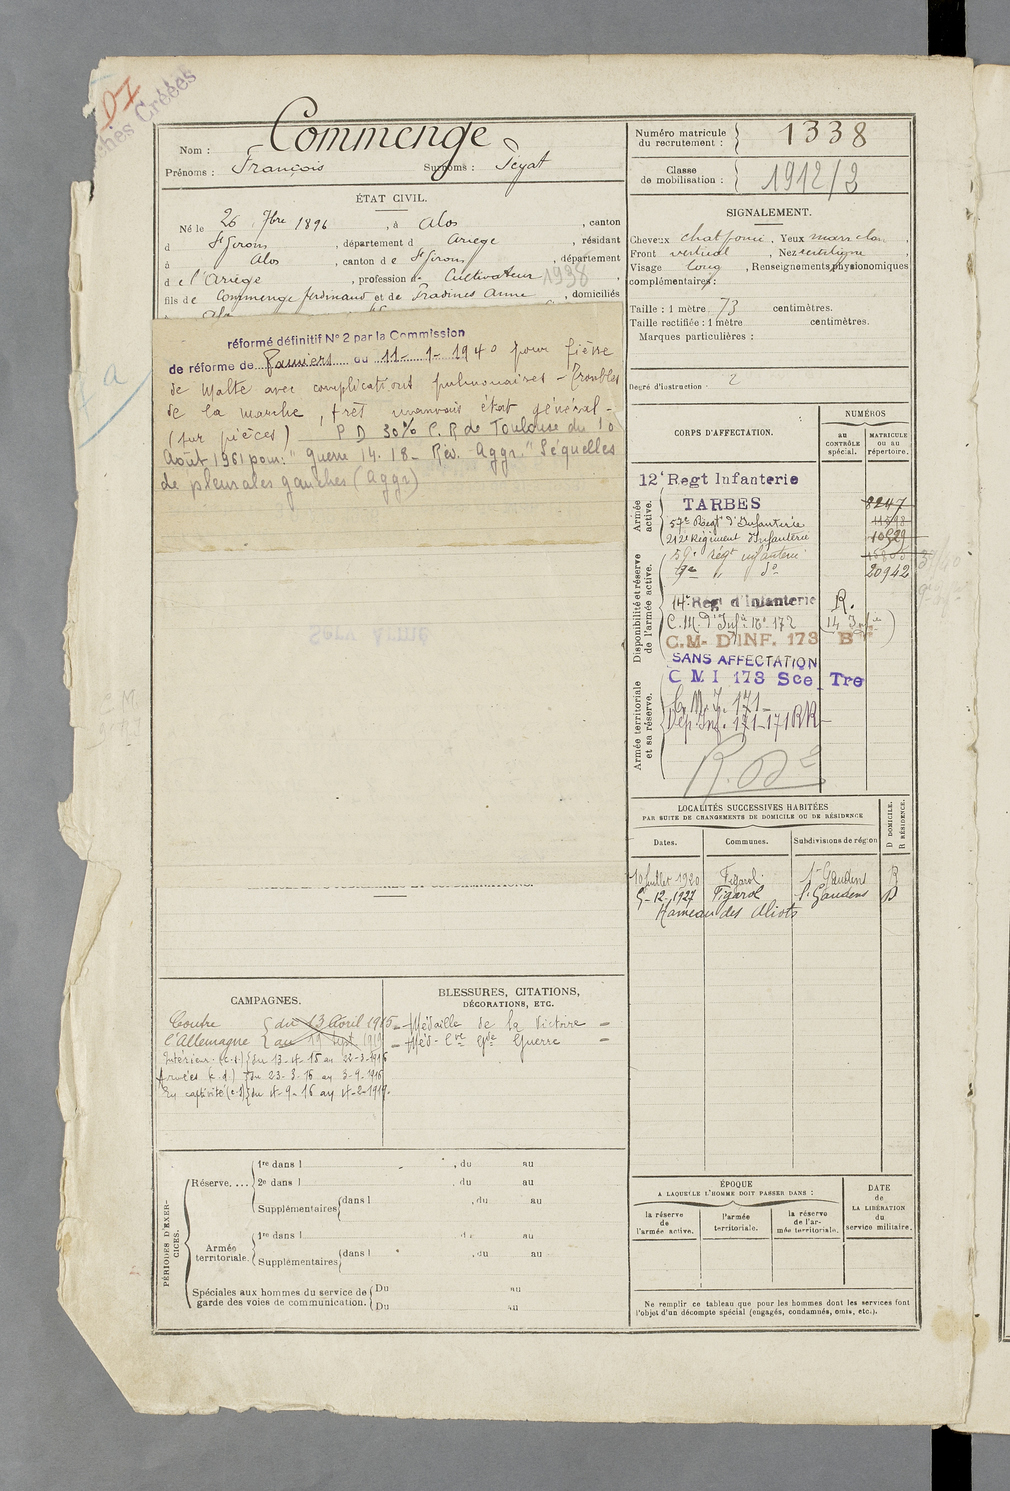 DI
Fiches Créées
Nom : Commenge
Prénoms : François Surnoms : Peyat
Numéro matricule du recrutement : 1338
Classe de mobilisation : 1912/2
ÉTAT CIVIL.
Né le 26 7bre 1896, à Alos, canton
d St Girons, département d Ariège, résidant
à Alos, canton de St Girons, département
de l'Ariège, profession de Cultivateur 1938
fils de Commenge Ferdinand et de Pradines Anne, domiciliés
SIGNALEMENT.
Cheveux chat foncé, Yeux marr. clair,
Front vertical, Nez rectiligne,
Visage long, Renseignements physionomiques
complémentaires :
Taille : 1 mètre 73 centimètres.
Taille rectifiée : 1 mètre centimètres.
Marques particulières :
Degré d'instruction - 2
réformé définitif No 2 par la Commission
de réforme de Pamiers du 11-1-1940 pour fièvre
de Malte avec complications pulmonaires - Troubles
de la marche, très mauvais état général -
(sur pièces) P D 30% C.R de Toulouse du 10
Août 1961 pour: "guerre 14.18 - Rév. Aggr." Séquelles
de pleurales gauches (Aggr)
Serv Armé
CORPS D'AFFECTATION.
NUMÉROS
au CONTRÔLE spécial.
MATRICULE ou au répertoire.
Armée active.
12e Regt Infanterie
TARBES 8247
57e Régt d'Infanterie
212e Régiment d'Infanterie 10529
Disponibilité et réserve de l'armée active.
59e régt infanterie
9e " do 20942
14e Regt d'Infanterie R.
C.M. d'Infie No 172 (14 Infie)
C.M- D'INF. 173 B
SANS AFFECTATION
C M I 173 Sce Tre
Armée territoriale et sa réserve.
C.M.I. 171-
Dép. Inf. 171-171RR-
LOCALITÉS SUCCESSIVES HABITÉES
PAR SUITE DE CHANGEMENTS DE DOMICILE OU DE RÉSIDENCE
Dates. Communes. Subdivisions de région
D DOMICILE. R RÉSIDENCE.
10 juillet 1920 Figarol St Gaudens R
5-12-1927 Figarol St Gaudens D
Hameau des Aliots
CAMPAGNES.
Contre { du 13 Avril 1915
l'Allemagne { au 19 Sept 1919
Intérieur (c.s) { du 13-4-15 au 22-3-1916
Armées (c.d.) { du 23-3-16 au 3-9-1916
En captivité (c.s) { du 4-9-16 au 4-2-1919.
BLESSURES, CITATIONS,
DÉCORATIONS, ETC.
- Médaille de la Victoire -
- Méd- Cve Gde Guerre -
PÉRIODES D'EXERCICES.
Réserve. ... 1re dans l , du au
2e dans l , du au
Supplémentaires dans l , du au
Armée territoriale. 1re dans l , du au
Supplémentaires dans l , du au
Spéciales aux hommes du service de Du au
garde des voies de communication. Du au
ÉPOQUE
A LAQUELLE L'HOMME DOIT PASSER DANS :
la réserve de l'armée active.
l'armée territoriale.
la réserve de l'armée territoriale.
DATE de LA LIBÉRATION du service militaire.
Ne remplir ce tableau que pour les hommes dont les services font
l'objet d'un décompte spécial (engagés, condamnés, omis, etc.).